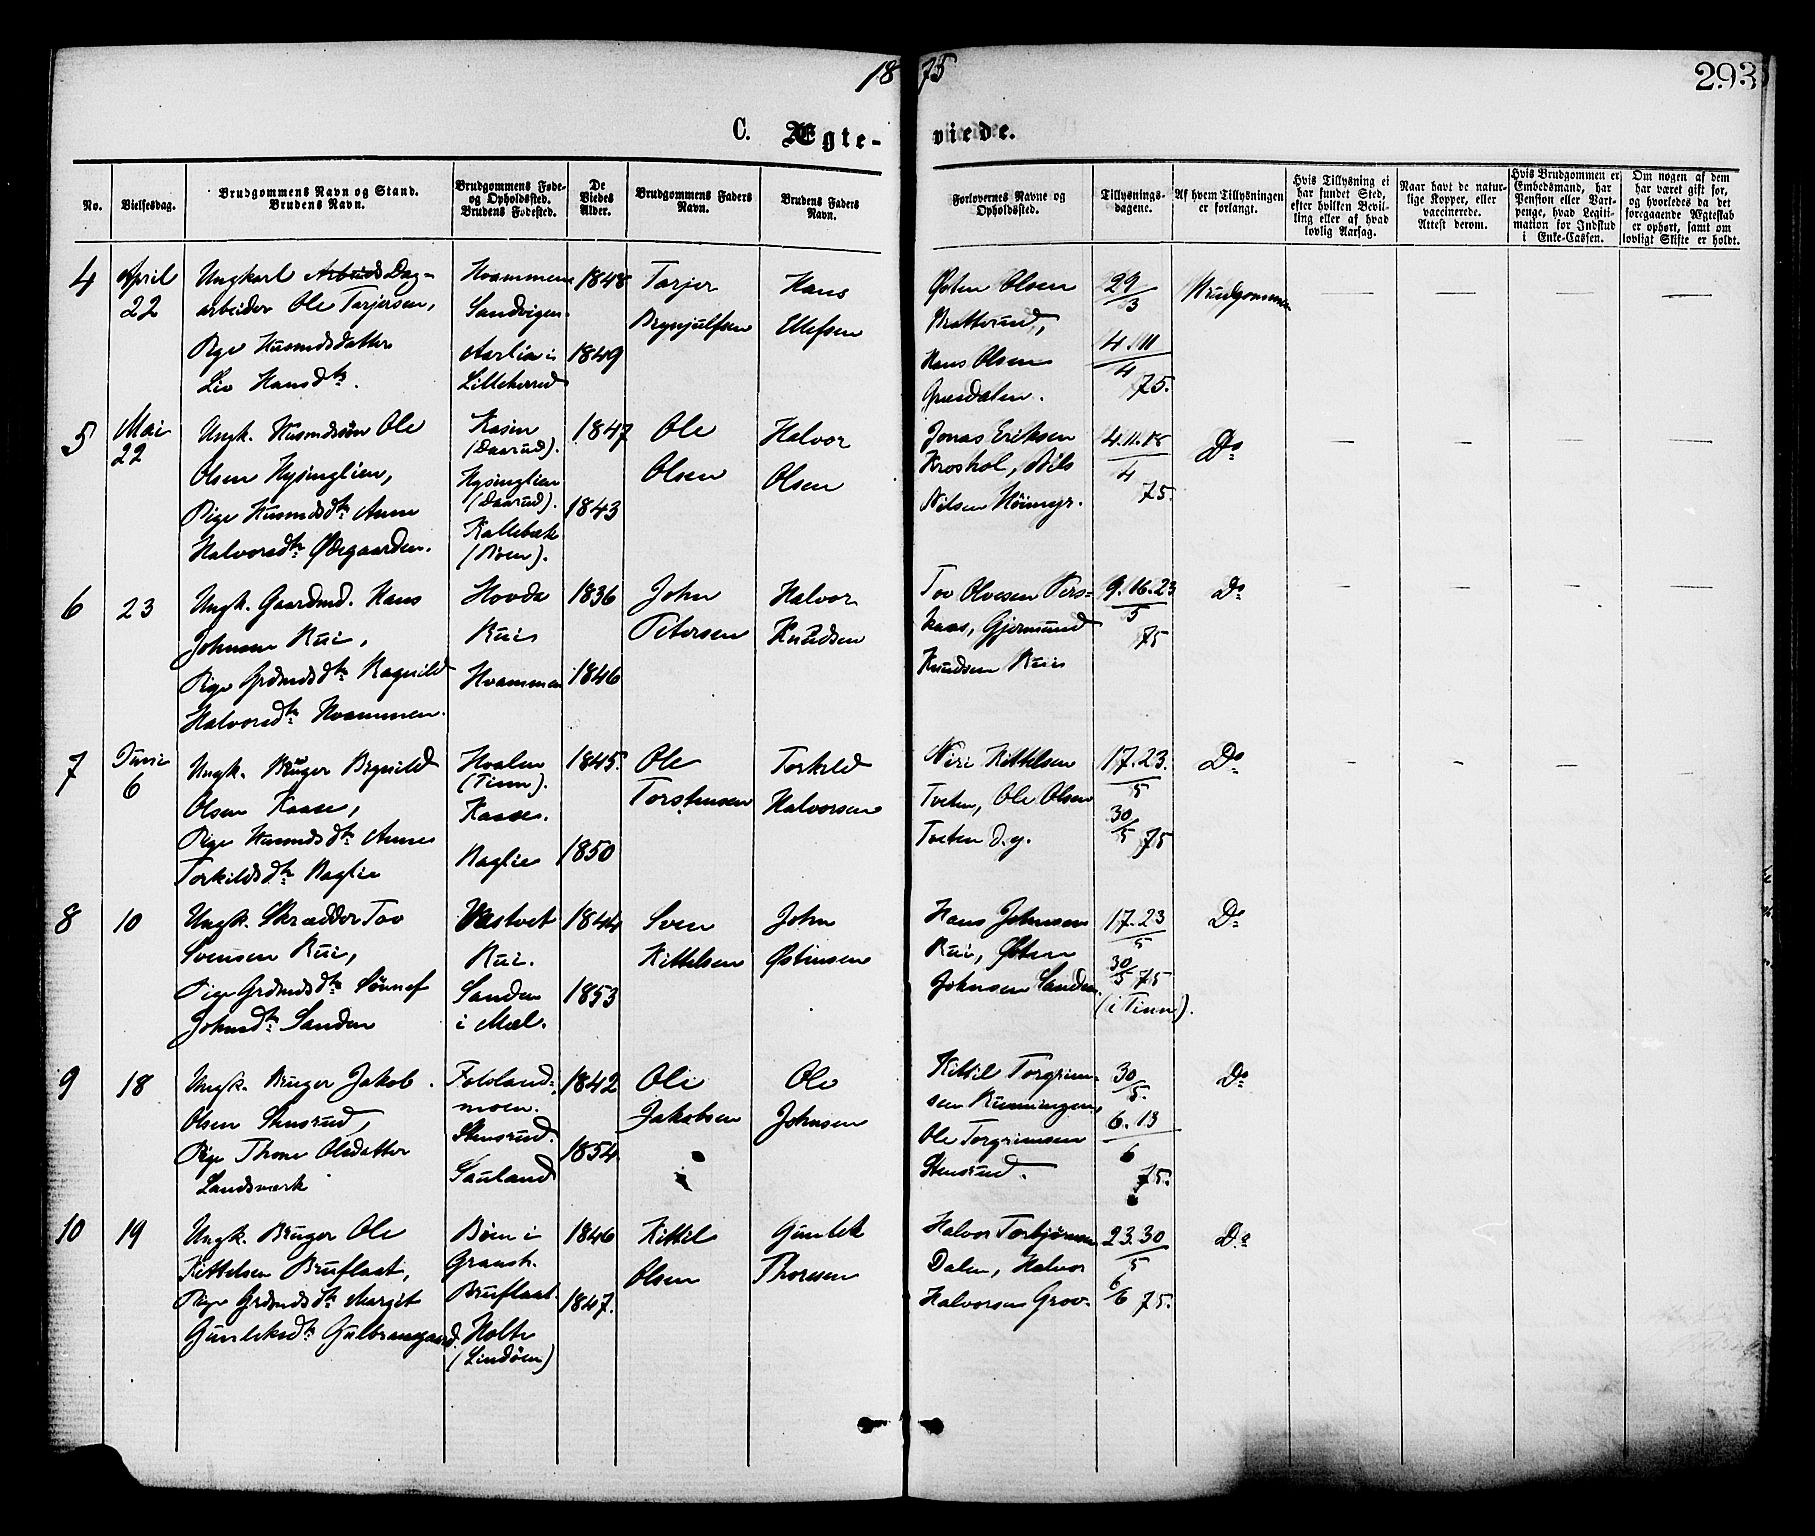 18 75
293
C. Ægte- viede.
No.
Vielsesdag.
Brudgommens Navn og Stand.
Brudens Navn.
Brudgommens Føde-
og Opholdssted.
Brudens Fødested.
De
Viedes
Alder.
Brudgommens Faders
Navn.
Brudens Faders
Navn.
Forlovernes Navne og
Opholdssted.
Tillysnings-
dagene.
Af hvem Tillysningen
er forlangt.
Hvis Tillysning ei
har fundet Sted,
efter hvilken Bevil-
ling eller af hvad
lovlig Aarsag.
Naar havt de natur-
lige Kopper, eller
vaccinerede.
Attest derom.
Hvis Brudgommen er
Embedsmand, har
Pension eller Vart-
penge, hvad Legiti-
mation for Indskud
i Enke-Cassen.
Om nogen af dem
har været gift før,
og hvorledes da det
foregaaende Ægteskab
er ophørt, samt om
lovligt Skifte er holdt.
4 April 22
Ungkarl Arbeids Dag-
arbeider Ole Tarjersen,
Pige Husmdsdatter
Liv Hansdtr.
Hvammen
Sandvigen
Aarlia i
Lilleherred
1848
1849
Tarjer
Brynjulfsen
Hans
Ellefsen
Østen Olsen
Bratterud,
Hans Olsen
Grusdalen.
29/3
4. 11/4 75.
Brudgommen
— — — —
5 Mai 22
Ungk. Husmdssøn Ole
Olsen Hysinglien,
Pige Husmdsdtr Anne
Halvorsdtr Ødegaarden.
Kasin
(Daarud).
Hysinglien
(Daarud).
Kallebæk
(Moen).
1847
1843
Ole
Olsen
Halvor
Olsen
Jonas Eriksen
Kroshol, Nils
Nilsen Høimyr.
4. 11. 18/4 75.
Do
— — — —
6 23
Ungk. Gaardmd. Hans
Johnsen Rui,
Pige Grdmdsdtr Ragnild
Halvorsdtr Hvammen.
Hovde
Rui
Hvammen
1836
1846
John
Petersen
Halvor
Knudsen
Tov Olvesen Vers-
haas, Gjermund
Knudsen Rui
9. 16. 23/5 75
Do
— — — —
7 Juni 6
Ungk. Bruger Brynild
Olsen Kaase,
Pige Husmdsdtr Anne
Torkildsdtr Baglie
Hvalen
(Tinn).
Kaase.
Baglie
1845.
1850
Ole
Torstensen
Torkild
Halvorsen
Niri Kittelsen
Tveten, Ole Olsen
Tveten d. y.
17. 23./5
30/5 75
Do
— — — —
8 10
Ungk. Skrædder Tov
Svensen Rui,
Pige Grdmdsdtr Sønnef
Johnsdtr Sanden
Vastvet
Rui.
Sanden
i Mæl.
1844
1853
Sven
Kittelsen
John
Østensen
Hans Johnsen
Rui, Østen
Johnsen Sanden
(i Tinn).
17. 23/5
30/5 75
Do
9 18
Ungk. Bruger Jakob
Olsen Stensrud,
Pige Thone Olsdatter
Landsværk
Folsland-
moen.
Stensrud.
Sauland
1842
1854.
Ole
Jakobsen
Ole
Johnsen
Kittil Torgrim-
sen Runningen,
Ole Torgrimsen
Stensrud.
30/5.
6. 13/6 75.
Do
10 19
Ungk. Bruger Ole
Kittelsen Bruflaat,
Pige Grdmdsdtr Margit
Gunleksdtr Gulbrangaard.
Bøen i
Gransh.
Bruflaat.
Holte
(Lindøen)
1846
1847.
Kittil
Olsen
Gunlek
Thoresen
Halvor Torbjørnsen
Dalen, Halvor
Halvorsen Grov.
23. 30/5
6/6 75.
Do